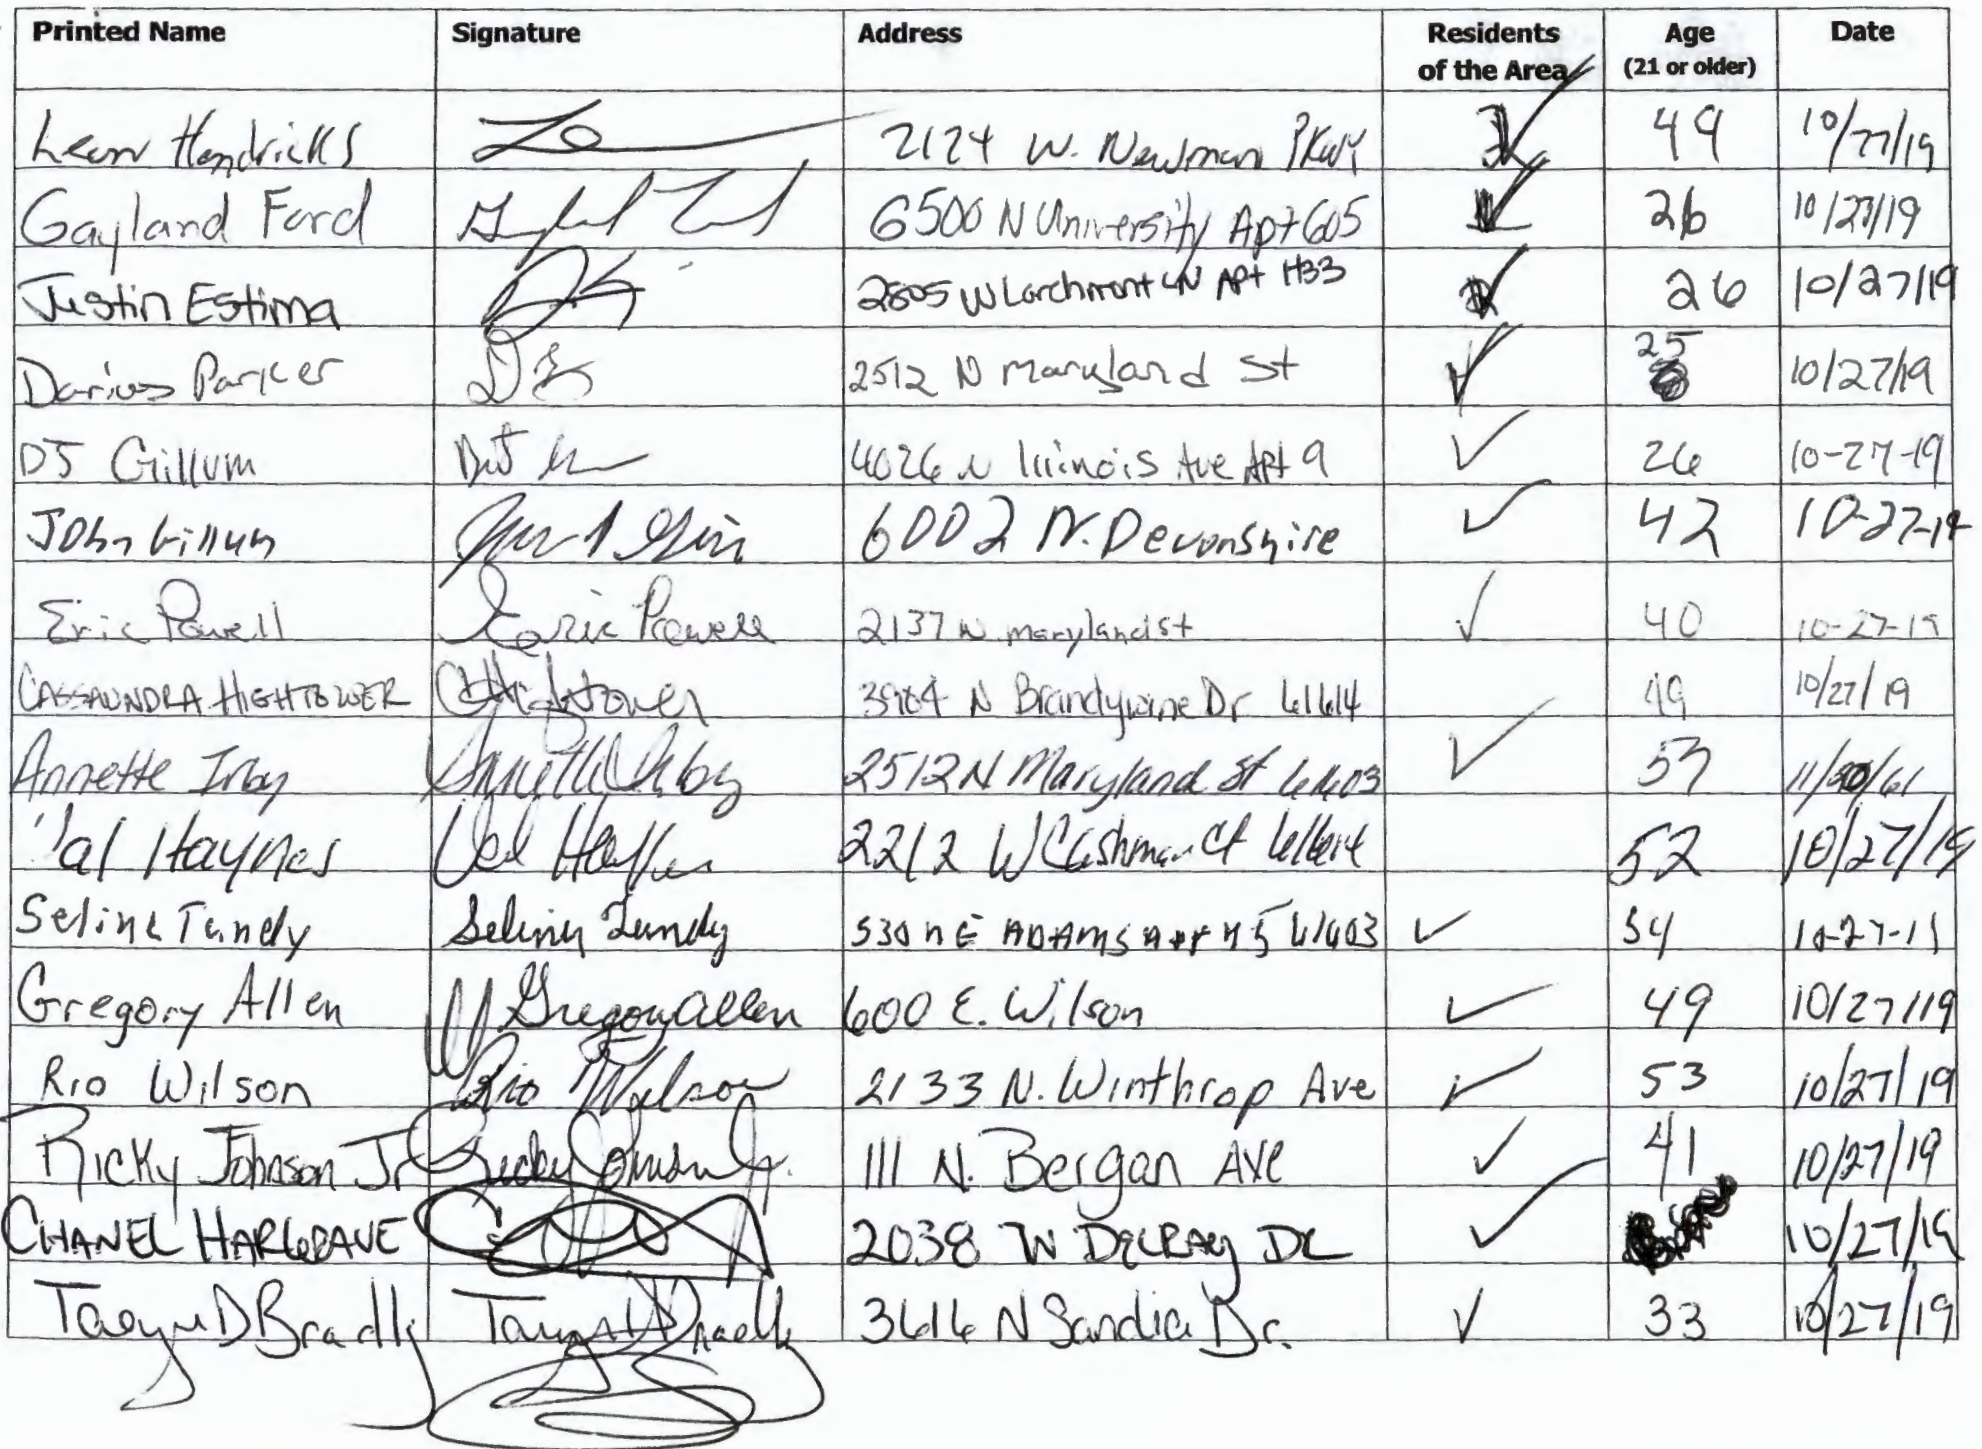 Printed Name Signature Address Residents of the Area Age (21 or older) Date
Leon Hendricks 2124 W. Newman PKWY 49 10/27/19
Gayland Ford 6500 N University Apt 605 26 10/27/19
Justin Estima 2805 W Larchmont LN APt H33 26 10/27/19
Darius Parker 2512 N Maryland St 25 10/27/19
DJ Gillum 4026 N Illinois Ave Apt 9 26 10-27-19
John Gillum 6002 N. Devonshire 42 10-27-19
Eric Powell Eric Powell 2137 N maryland st 40 10-27-19
CASSAUNDRA HIGHTOWER CHightower 3904 N Brandywine Dr 61614 49 10/27/19
Annette Irby Annette Irby 2512 N Maryland St 61603 57 11/ /61
Val Haynes Val 2212 W Cashman Ct 52 10/27/19
Selina Tandy Selina Tandy 530 N E ADAMS Apt 61603 54 10-27-19
Gregory Allen Gregory Allen 600 E. Wilson 49 10/27/19
Rio Wilson Rio Wilson 2133 N. Winthrop Ave 53 10/27/19
Ricky Johnson Jr Ricky Johnson Jr. 111 N. Bergan Ave 41 10/27/19
CHANEL HARGRAVE 2038 W DELRAY 10/27/19
D Bradly 3616 N Sandia Dr. 33 10/27/19